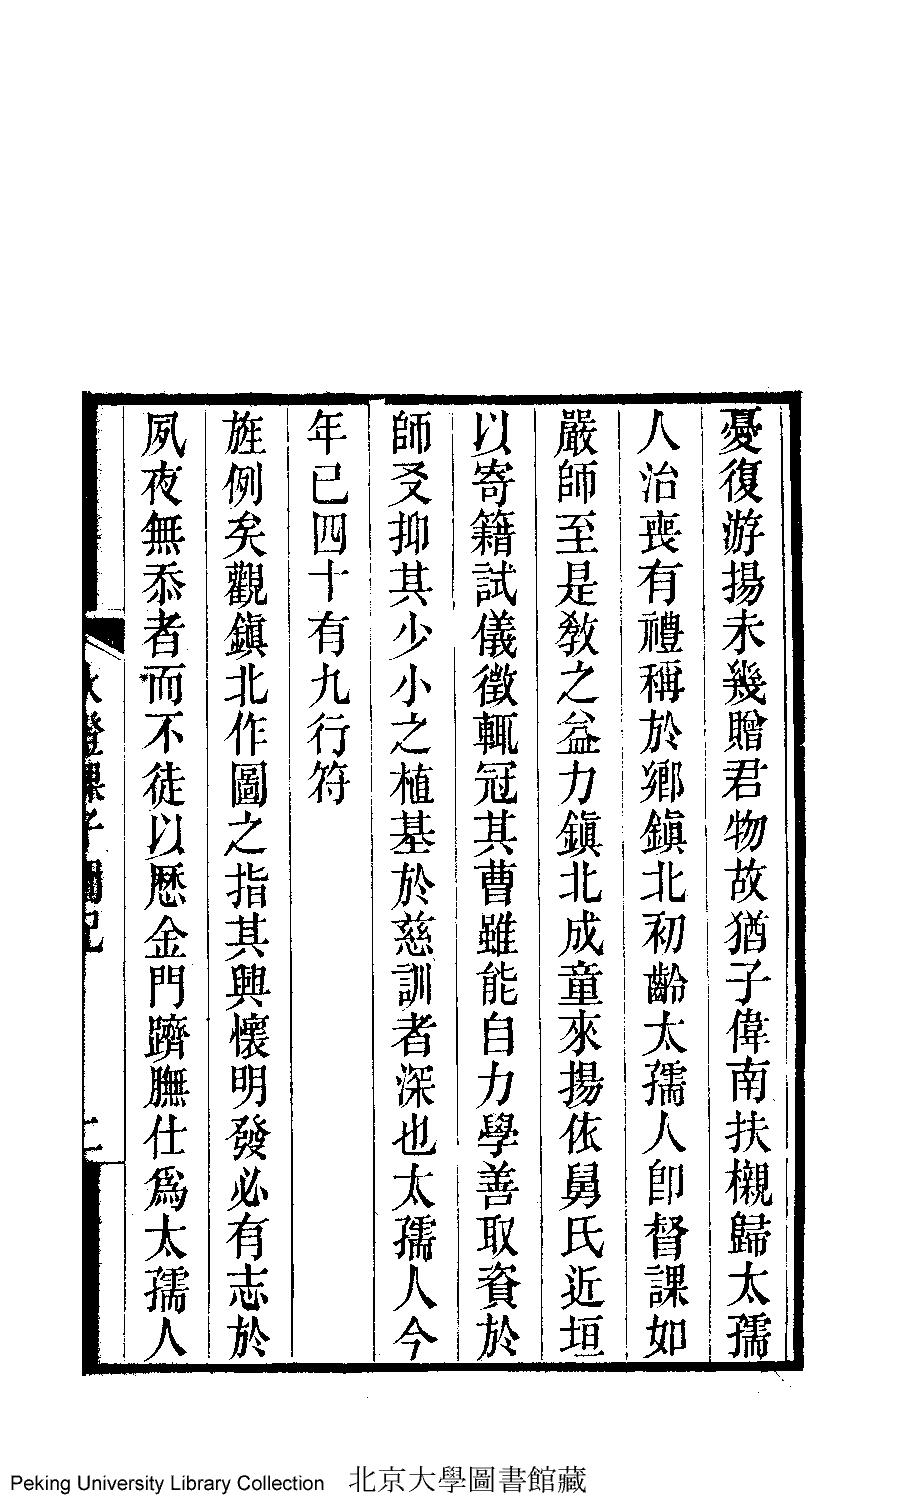 憂復游揚未幾贈君物故猶子偉南扶櫬歸太孺
人治喪有禮稱於鄉鎭北初齡太孺人卽督課如
嚴師至是敎之益力鎭北成童來揚依舅氏近垣
以寄籍試儀徵輒冠其曹雖能自力學善取資於
師叉抑其少小之植基於慈訓者深也太孺人今
年已四十有九行符
旌例矣觀鎭北作圖之指其興懷明發必有志於
夙夜無忝者而不徒以厯金門躋膴仕爲太孺人
課子圖記
二
Peking University Library Collection 北京大學圖書館藏